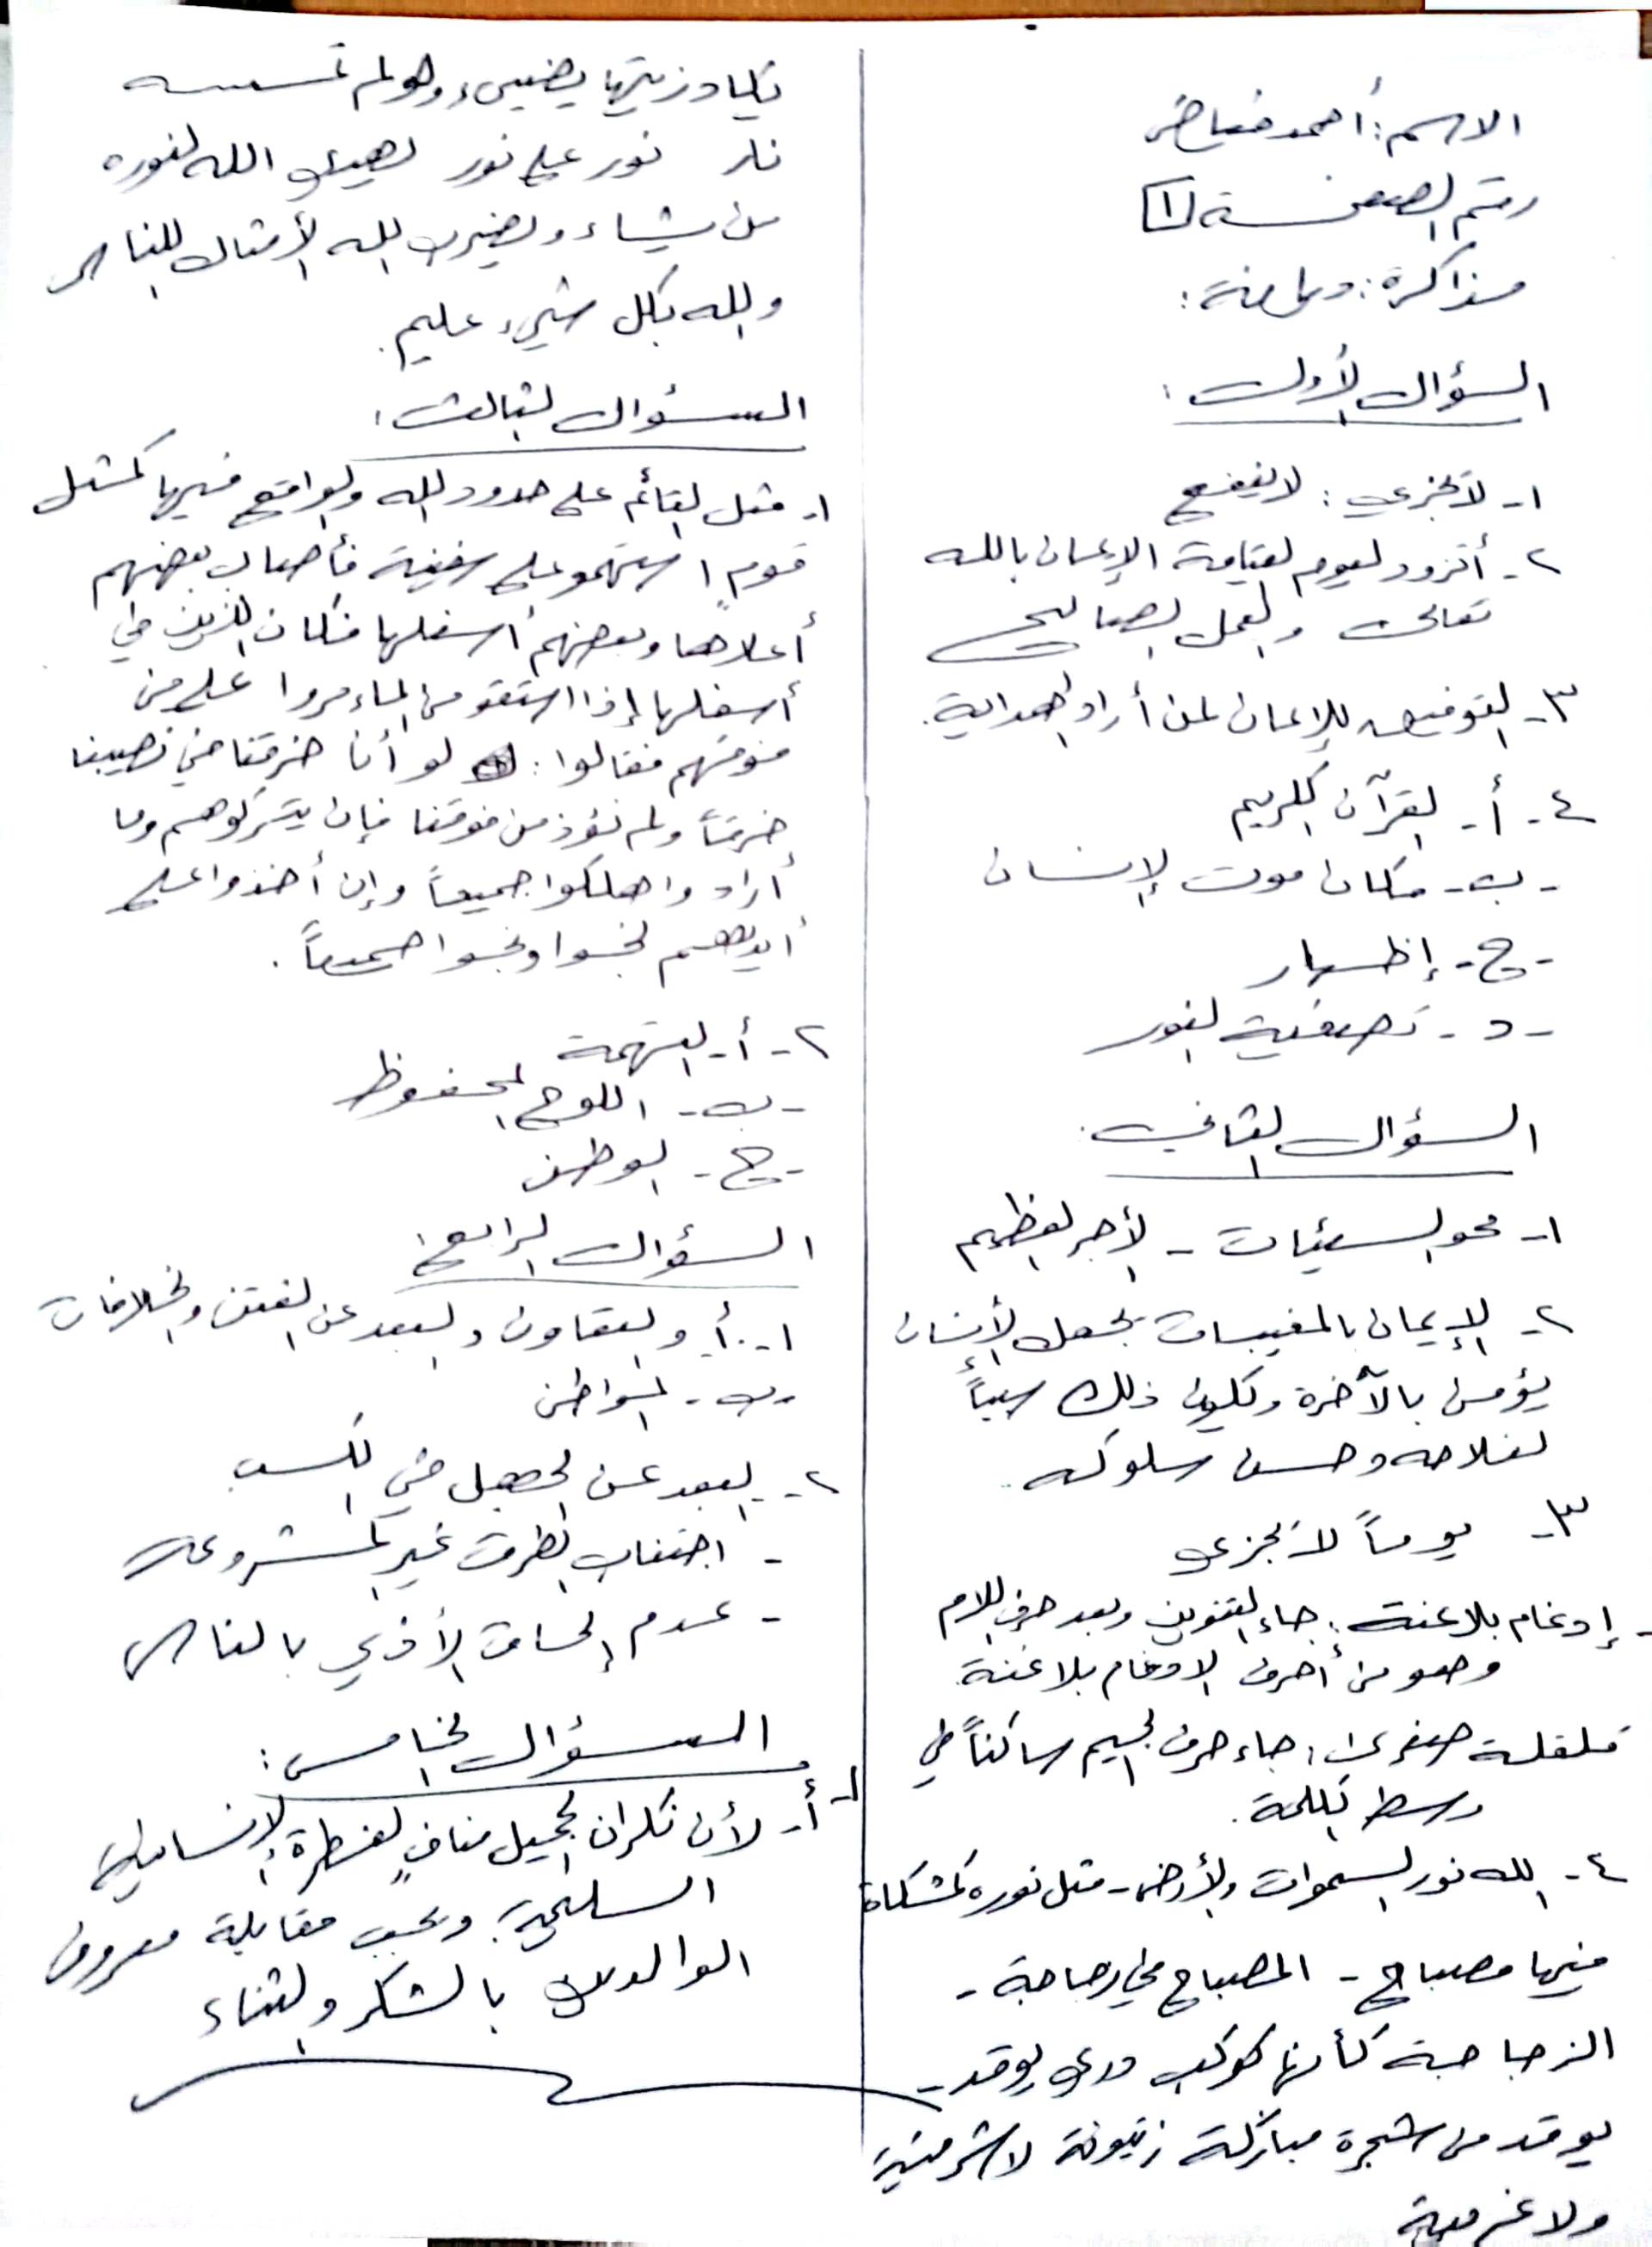 الاسم: أحمد فياض
رقم الصفحة ١
مذاكرة: ديانة:
السؤال الأول:
١- لا تجزي: لا ينفع
٢- أتزود ليوم القيامة الإيمان بالله
تعالى والعمل الصالح
٣- التوفيق للإيمان لمن أراد الهداية.
٤- أ- القرآن الكريم
- ب- مكان موت الإنسان
- ج- إظهار
- د- تصفية النور
السؤال الثاني:
١- محو السيئات - الأجر العظيم
٢- الإيمان بالمغيبات يجعل الإنسان
يؤمن بالآخرة ويكون ذلك سبباً
لفلاحه وحسن سلوكه
٣- يوماً لا يجزي
- إدغام بلا غنة: جاء التنوين وبعد حرف اللام
وهو من أحرف الادغام بلا غنة.
قلقلة صغرى: جاء حرف الجيم ساكناً في
وسط الكلمة.
٤- الله نور السموات والأرض - مثل نوره كمشكاة
فيها مصباح - المصباح في زجاجة -
الزجاجة كأنها كوكب دري يوقد -
يوقد من شجرة مباركة زيتونة لا شرقية
ولا غربية
يكاد زيتها يضيىء ولو لم تمسسه
نار نور على نور يهدي الله لنوره
من يشاء ويضرب الله الأمثال للناس
والله بكل شيء عليم.
السؤال الثالث:
١- مثل القائم على حدود الله والواقع فيها كمثل
قومٍ استهمو على سفينة فأصاب بعضهم
أعلاها وبعضهم أسفلها فكان الذين في
أسفلها إذا استقو من الماء مروا على من
فوقهم فقالوا: لو أنا خرقنا في نصيبنا
خرقاً ولم نؤذ من فوقنا فإن يتركوهم وما
أرادوا هلكوا جميعاً وإن أخذوا على
أيديهم نجوا ونجوا جميعاً.
٢- أ- التهمة
- ب- اللوح المحفوظ
- ج- الوطن
السؤال الرابع:
١- أ- والتعاون والبعد عن الفتن والخلافات
- ب- المواطن
٢- البعد عن الجهل في الكسب
- اجتناب الطرق غير المشروعة
- عدم إلحاق الأذى بالناس
السؤال الخامس:
١- أ- لأن نكران الجميل منافٍ لفطرة الإنسانية
السليمة. ويجب مقابلة معروف
الوالدين بالشكر والثناء